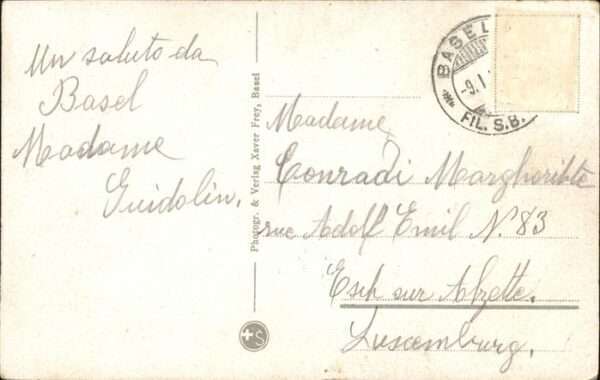 Un saluto da
Basel
Madame
Guidolin.
Photogr. & Verlag Xaver Frey, Basel
BASEL
-9.I
FIL. S.B.
Madame
Conradi Margheritte
rue Adolf Emil N. 83
Esch sur Alzette.
Luxemburg.
S